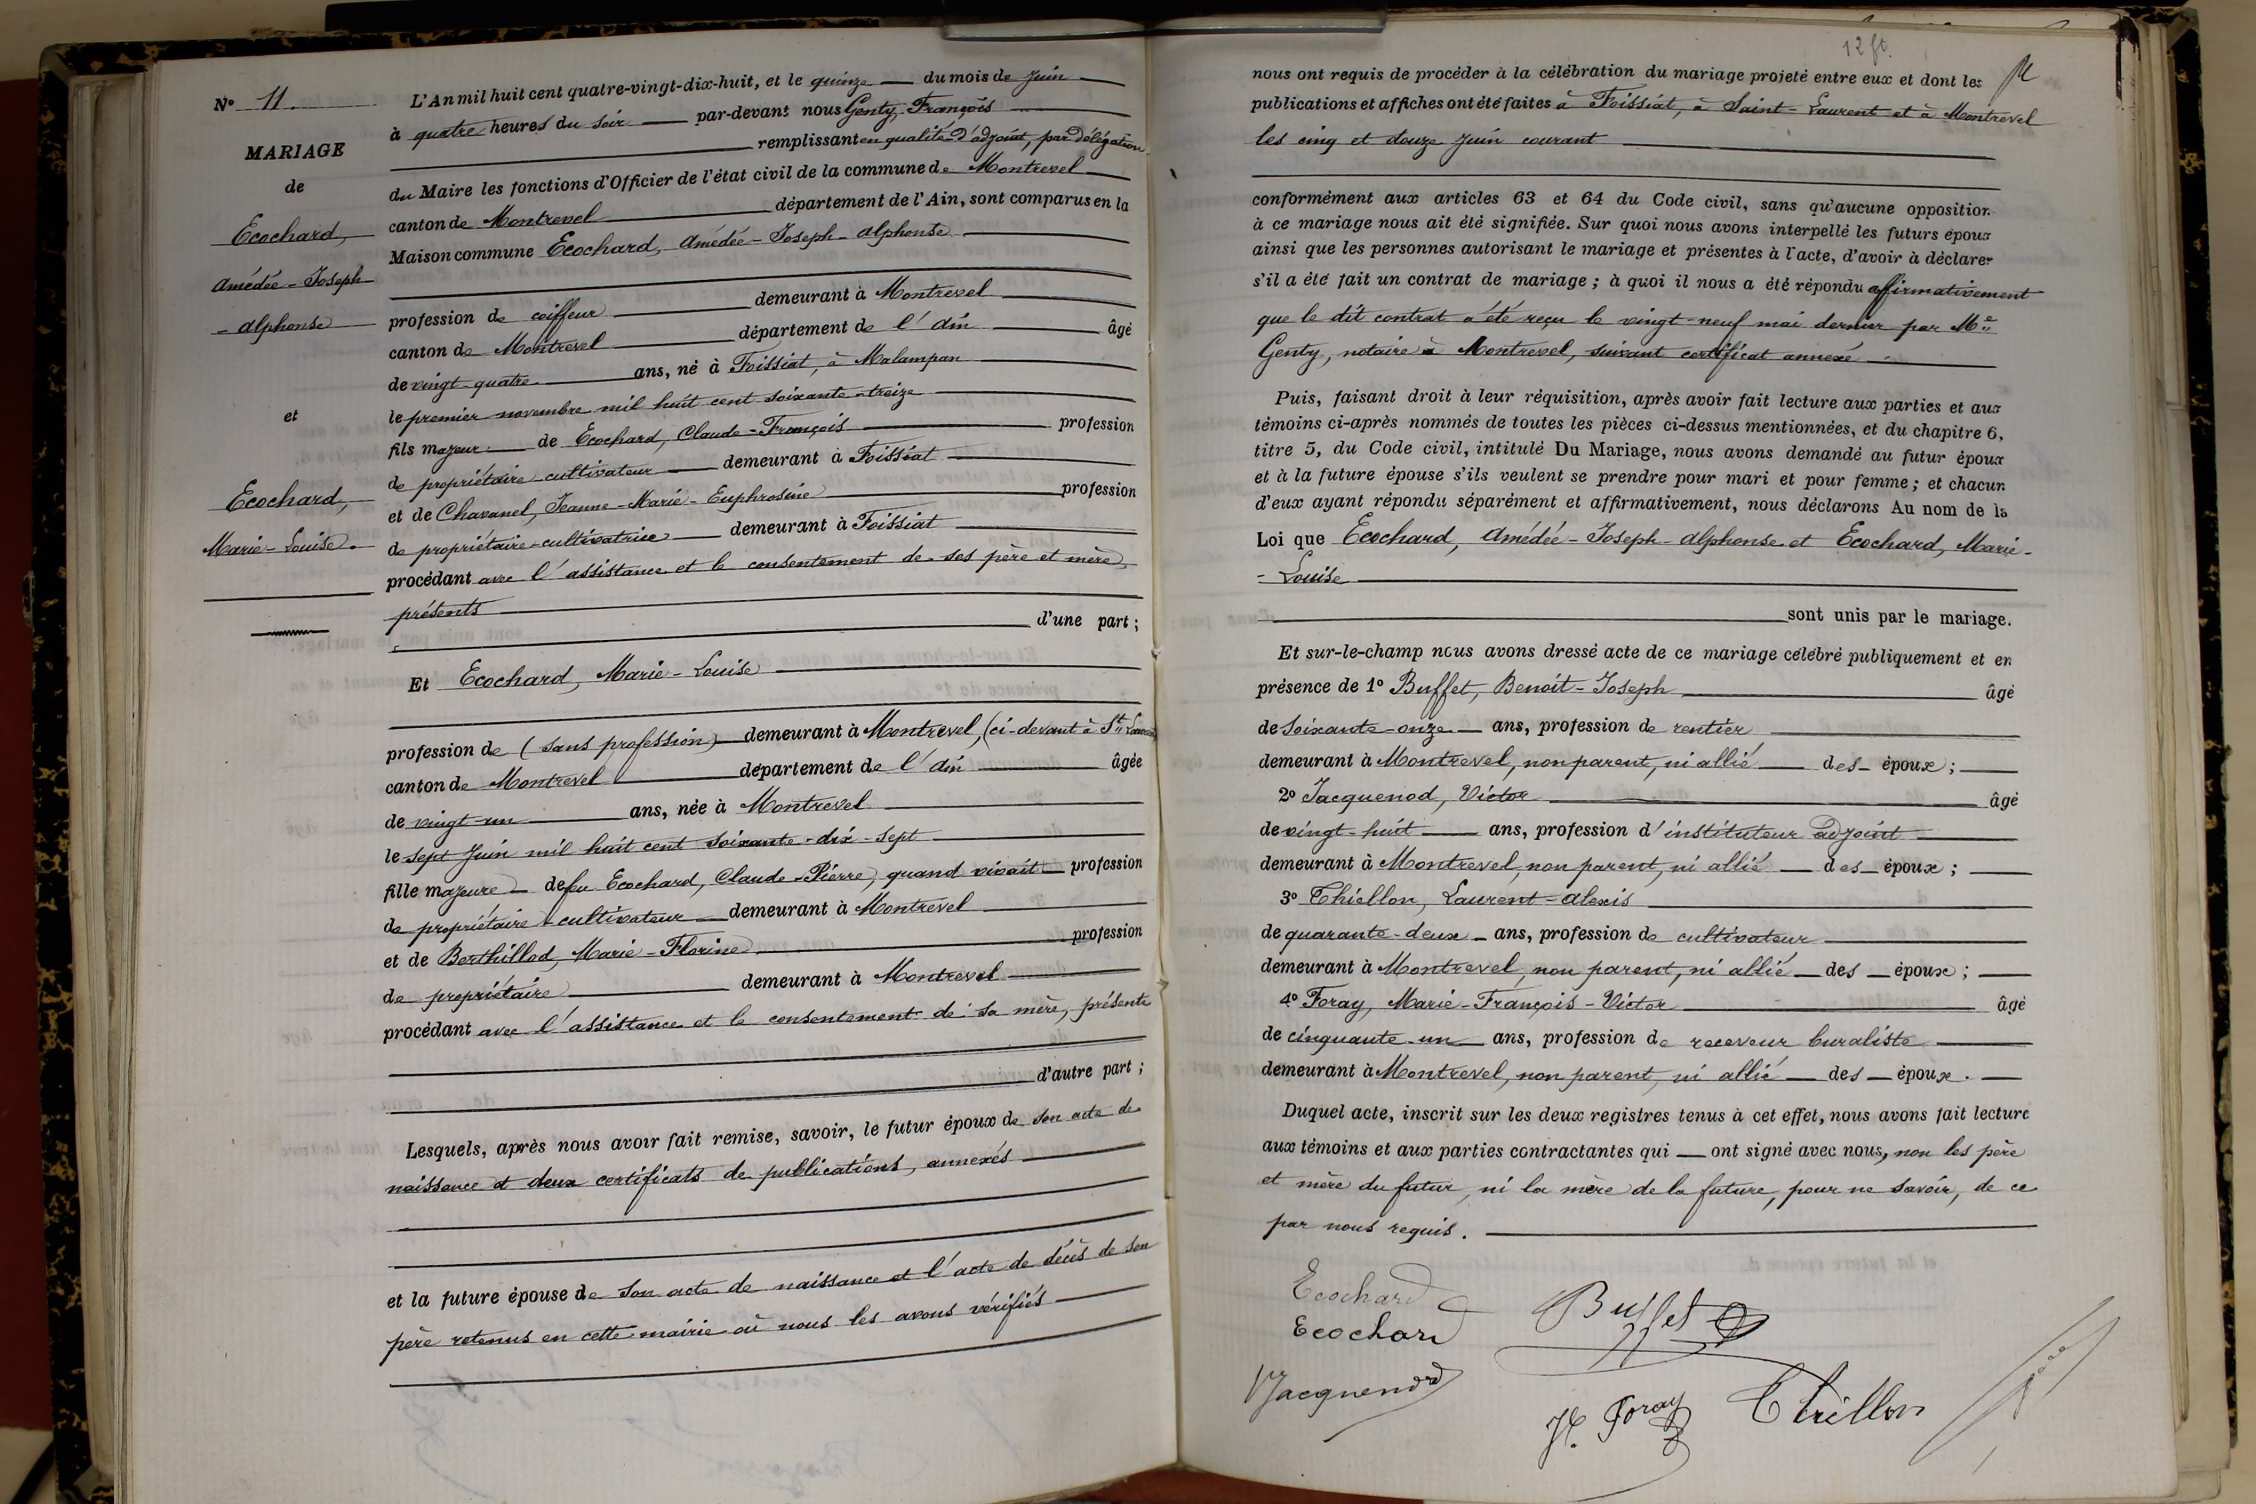 N° 11.
MARIAGE
de
Ecochard,
Amédée-Joseph-
-Alphonse
et
Ecochard,
Marie-Louise.
L'An mil huit cent quatre-vingt-dix-huit, et le quinze du mois de Juin
à quatre heures du soir par-devant nous Genty, François
remplissant en qualité d'adjoint, par délégation
du Maire les fonctions d'Officier de l'état civil de la commune de Montrevel
canton de Montrevel département de l'Ain, sont comparus en la
Maison commune Ecochard, Amédée-Joseph-Alphonse
profession de coiffeur demeurant à Montrevel
canton de Montrevel département de l'Ain âgé
de vingt-quatre ans, né à Foissiat, à Malampan
le premier novembre mil huit cent soixante-treize
fils majeur de Ecochard, Claude-François profession
de propriétaire-cultivateur demeurant à Foissiat
et de Chavanel, Jeanne-Marie-Euphrosine profession
de propriétaire-cultivatrice demeurant à Foissiat
procédant avec l'assistance et le consentement de ses père et mère,
présents
d'une part;
Et Ecochard, Marie-Louise
profession de (sans profession) demeurant à Montrevel, (ci-devant à St Laurent
canton de Montrevel département de l'Ain âgée
de vingt-un ans, née à Montrevel
le sept Juin mil huit cent soixante-dix-sept
fille majeure de feu Ecochard, Claude-Pierre, quand vivait profession
de propriétaire-cultivateur demeurant à Montrevel
et de Berthillod, Marie-Florine profession
de propriétaire demeurant à Montrevel
procédant avec l'assistance et le consentement de sa mère, présente
d'autre part;
Lesquels, après nous avoir fait remise, savoir, le futur époux de son acte de
naissance et deux certificats de publications, annexés
et la future épouse de son acte de naissance et l'acte de décès de son
père retenus en cette mairie où nous les avons vérifiés
12 ft.
nous ont requis de procéder à la célébration du mariage projeté entre eux et dont les
publications et affiches ont été faites à Foissiat, à Saint-Laurent et à Montrevel
les cinq et douze Juin courant
conformément aux articles 63 et 64 du Code civil, sans qu'aucune opposition
à ce mariage nous ait été signifiée. Sur quoi nous avons interpellé les futurs époux
ainsi que les personnes autorisant le mariage et présentes à l'acte, d'avoir à déclarer
s'il a été fait un contrat de mariage; à quoi il nous a été répondu affirmativement
que le dit contrat a été reçu le vingt-neuf mai dernier par Me
Genty, notaire à Montrevel, suivant certificat annexé
Puis, faisant droit à leur réquisition, après avoir fait lecture aux parties et aux
témoins ci-après nommés de toutes les pièces ci-dessus mentionnées, et du chapitre 6,
titre 5, du Code civil, intitulé Du Mariage, nous avons demandé au futur époux
et à la future épouse s'ils veulent se prendre pour mari et pour femme; et chacun
d'eux ayant répondu séparément et affirmativement, nous déclarons Au nom de la
Loi que Ecochard, Amédée-Joseph-Alphonse et Ecochard, Marie-
-Louise
sont unis par le mariage.
Et sur-le-champ nous avons dressé acte de ce mariage célébré publiquement et en
présence de 1° Buffet, Benoît-Joseph âgé
de soixante-onze ans, profession de rentier
demeurant à Montrevel, non parent, ni allié des époux;
2° Jacquenod, Victor âgé
de vingt-huit ans, profession d'instituteur adjoint
demeurant à Montrevel, non parent, ni allié des époux;
3° Thiellon, Laurent-Alexis
de quarante-deux ans, profession de cultivateur
demeurant à Montrevel, non parent, ni allié des époux;
4° Foray, Marie-François-Victor âgé
de cinquante-un ans, profession de receveur buraliste
demeurant à Montrevel, non parent, ni allié des époux.
Duquel acte, inscrit sur les deux registres tenus à cet effet, nous avons fait lecture
aux témoins et aux parties contractantes qui ont signé avec nous, non les père
et mère du futur, ni la mère de la future, pour ne savoir, de ce
par nous requis.
Ecochard
Buffet
Ecochard
VJacquenod
Foray
Thiellon